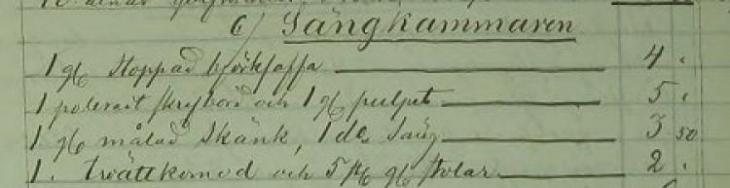 6/ Sängkammaren
1 gl stoppad björksoffa 4 .
1 polerait skrifbord och 1 gl pulpet 5 .
1 gl målad Skänk, 1 do Säng 3 50
1. Tvättkomod och 5 st gl stolar 2 .